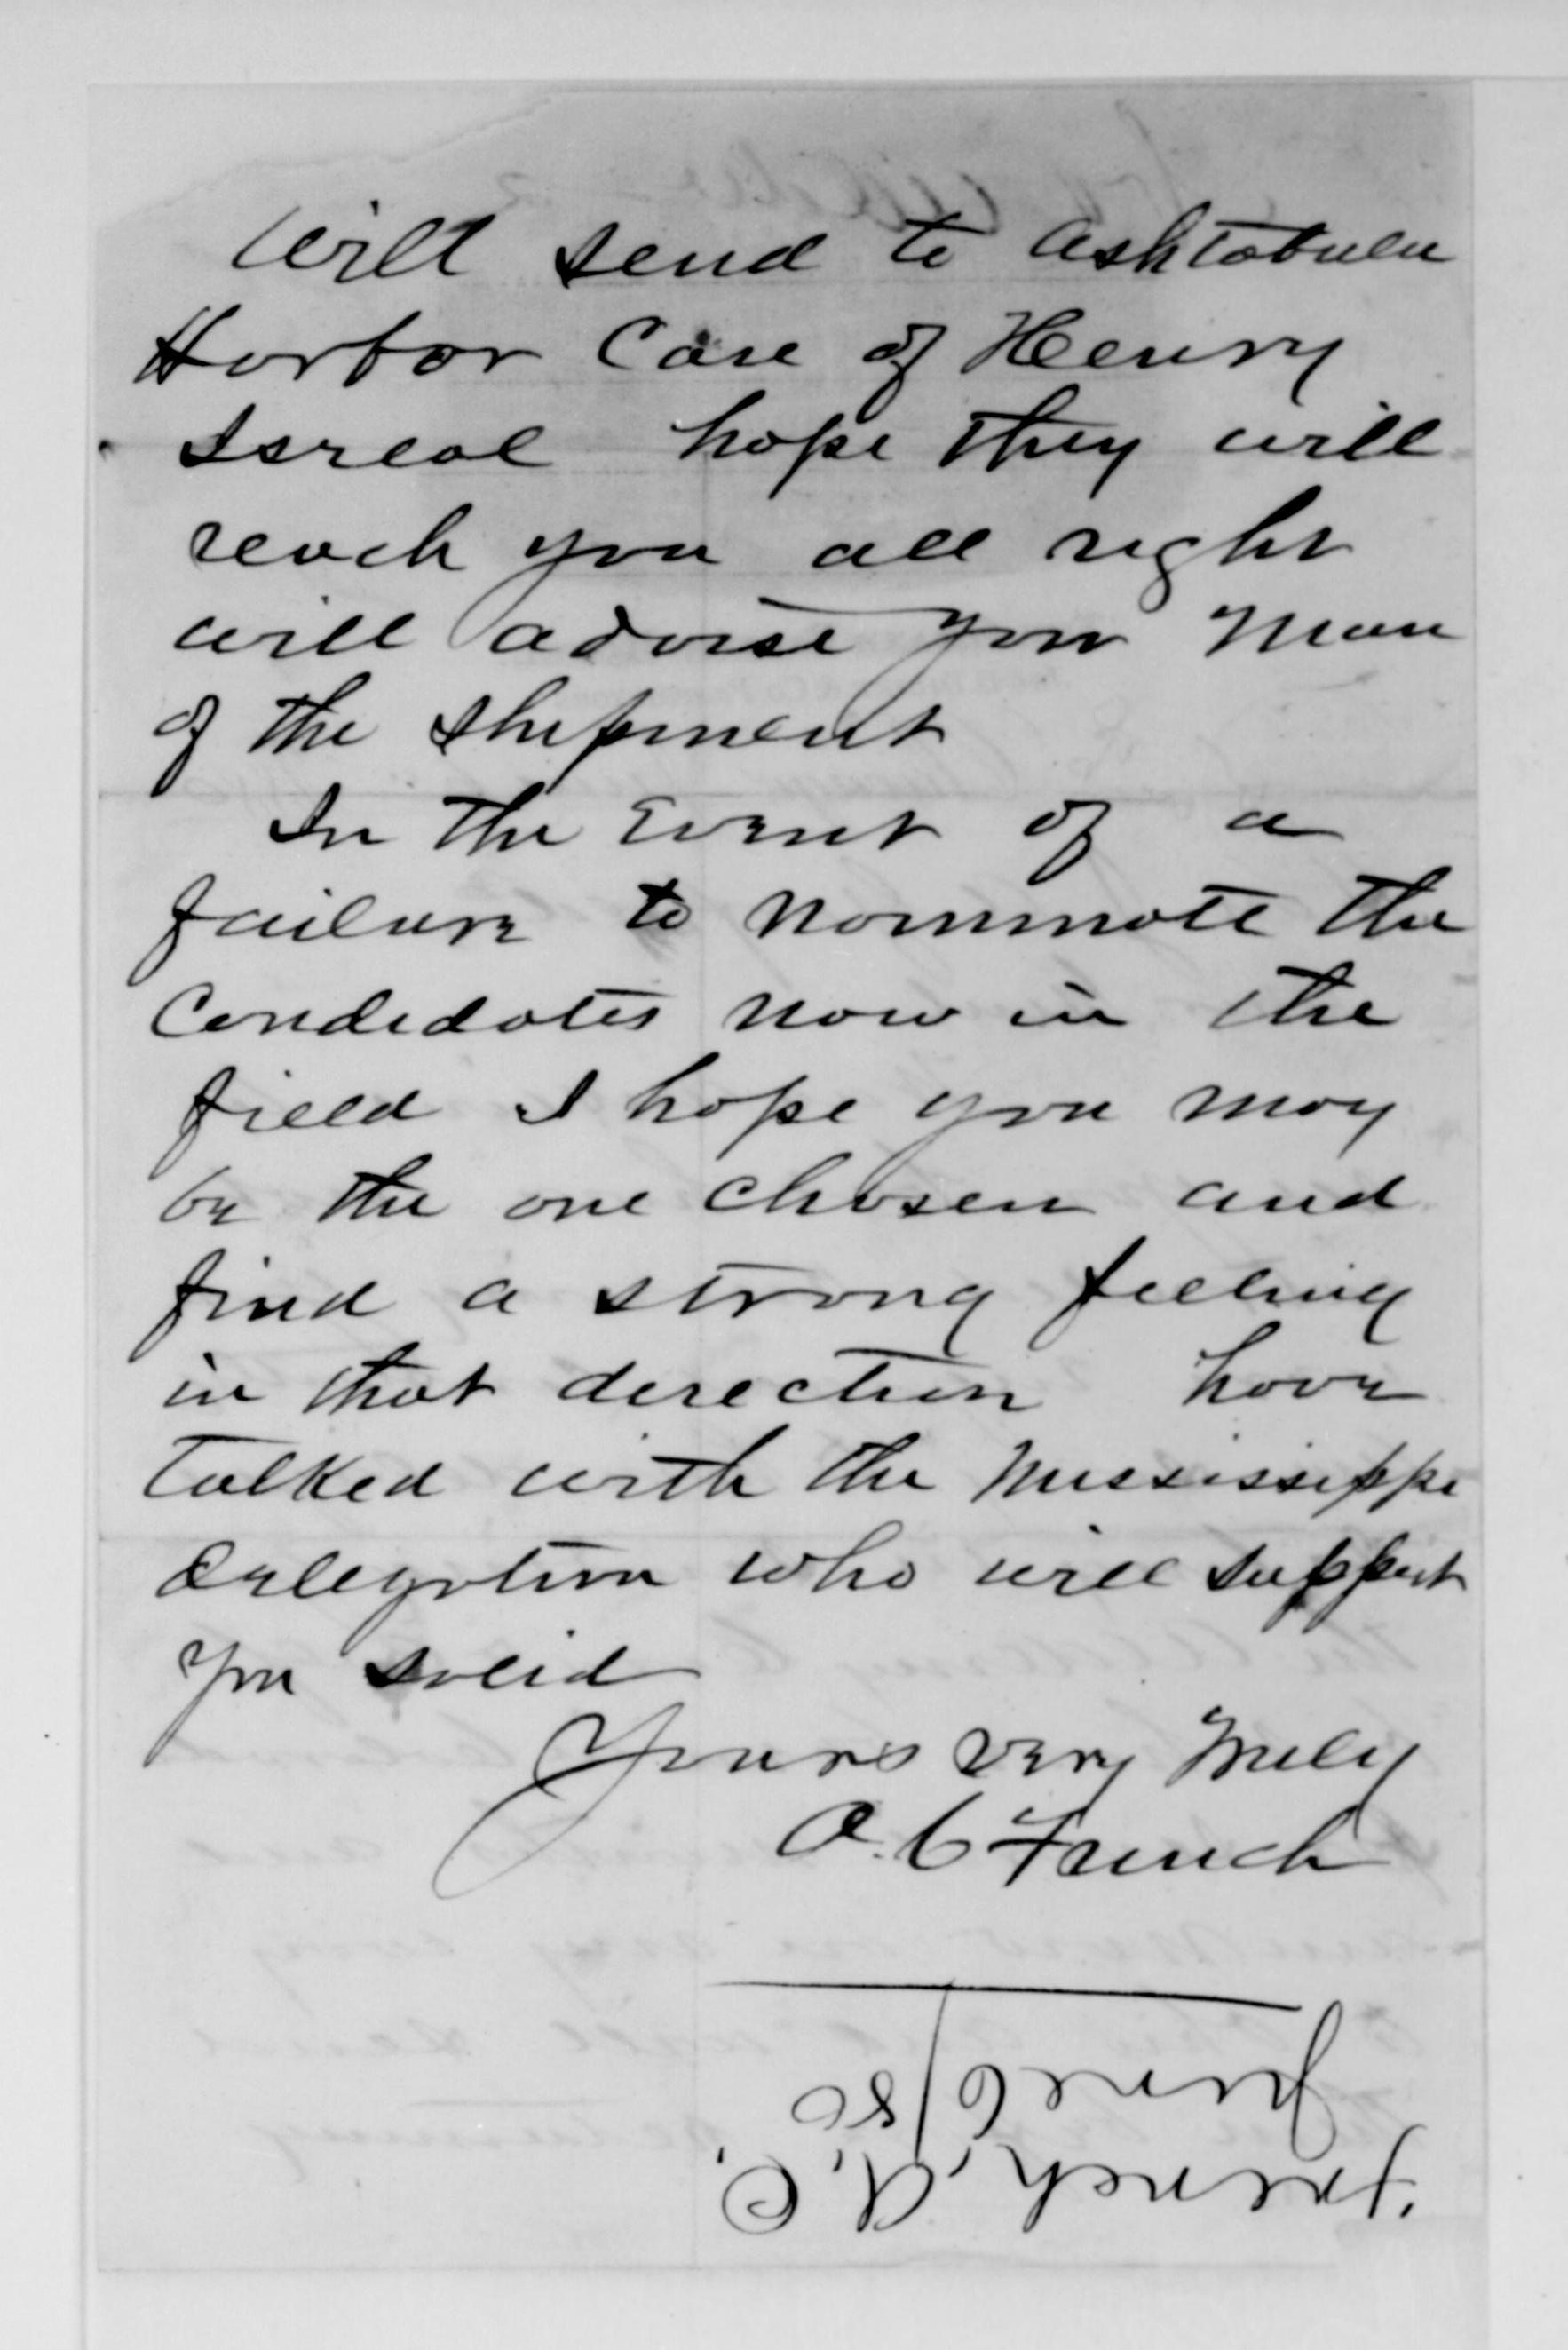 Will send to Ashtabula
Harbor Care of Henry
Isreal hope they will
reach you all right
will advise you more
of the shipment
In the Event of a
failure to nominate the
Candidates now in the
field I hope you may
be the one chosen and
find a strong feeling
in that direction have
talked with the Mississippi
Delegation who will support
you solid
Yours very Truly
A. C French
French, A. C.
June 6/80